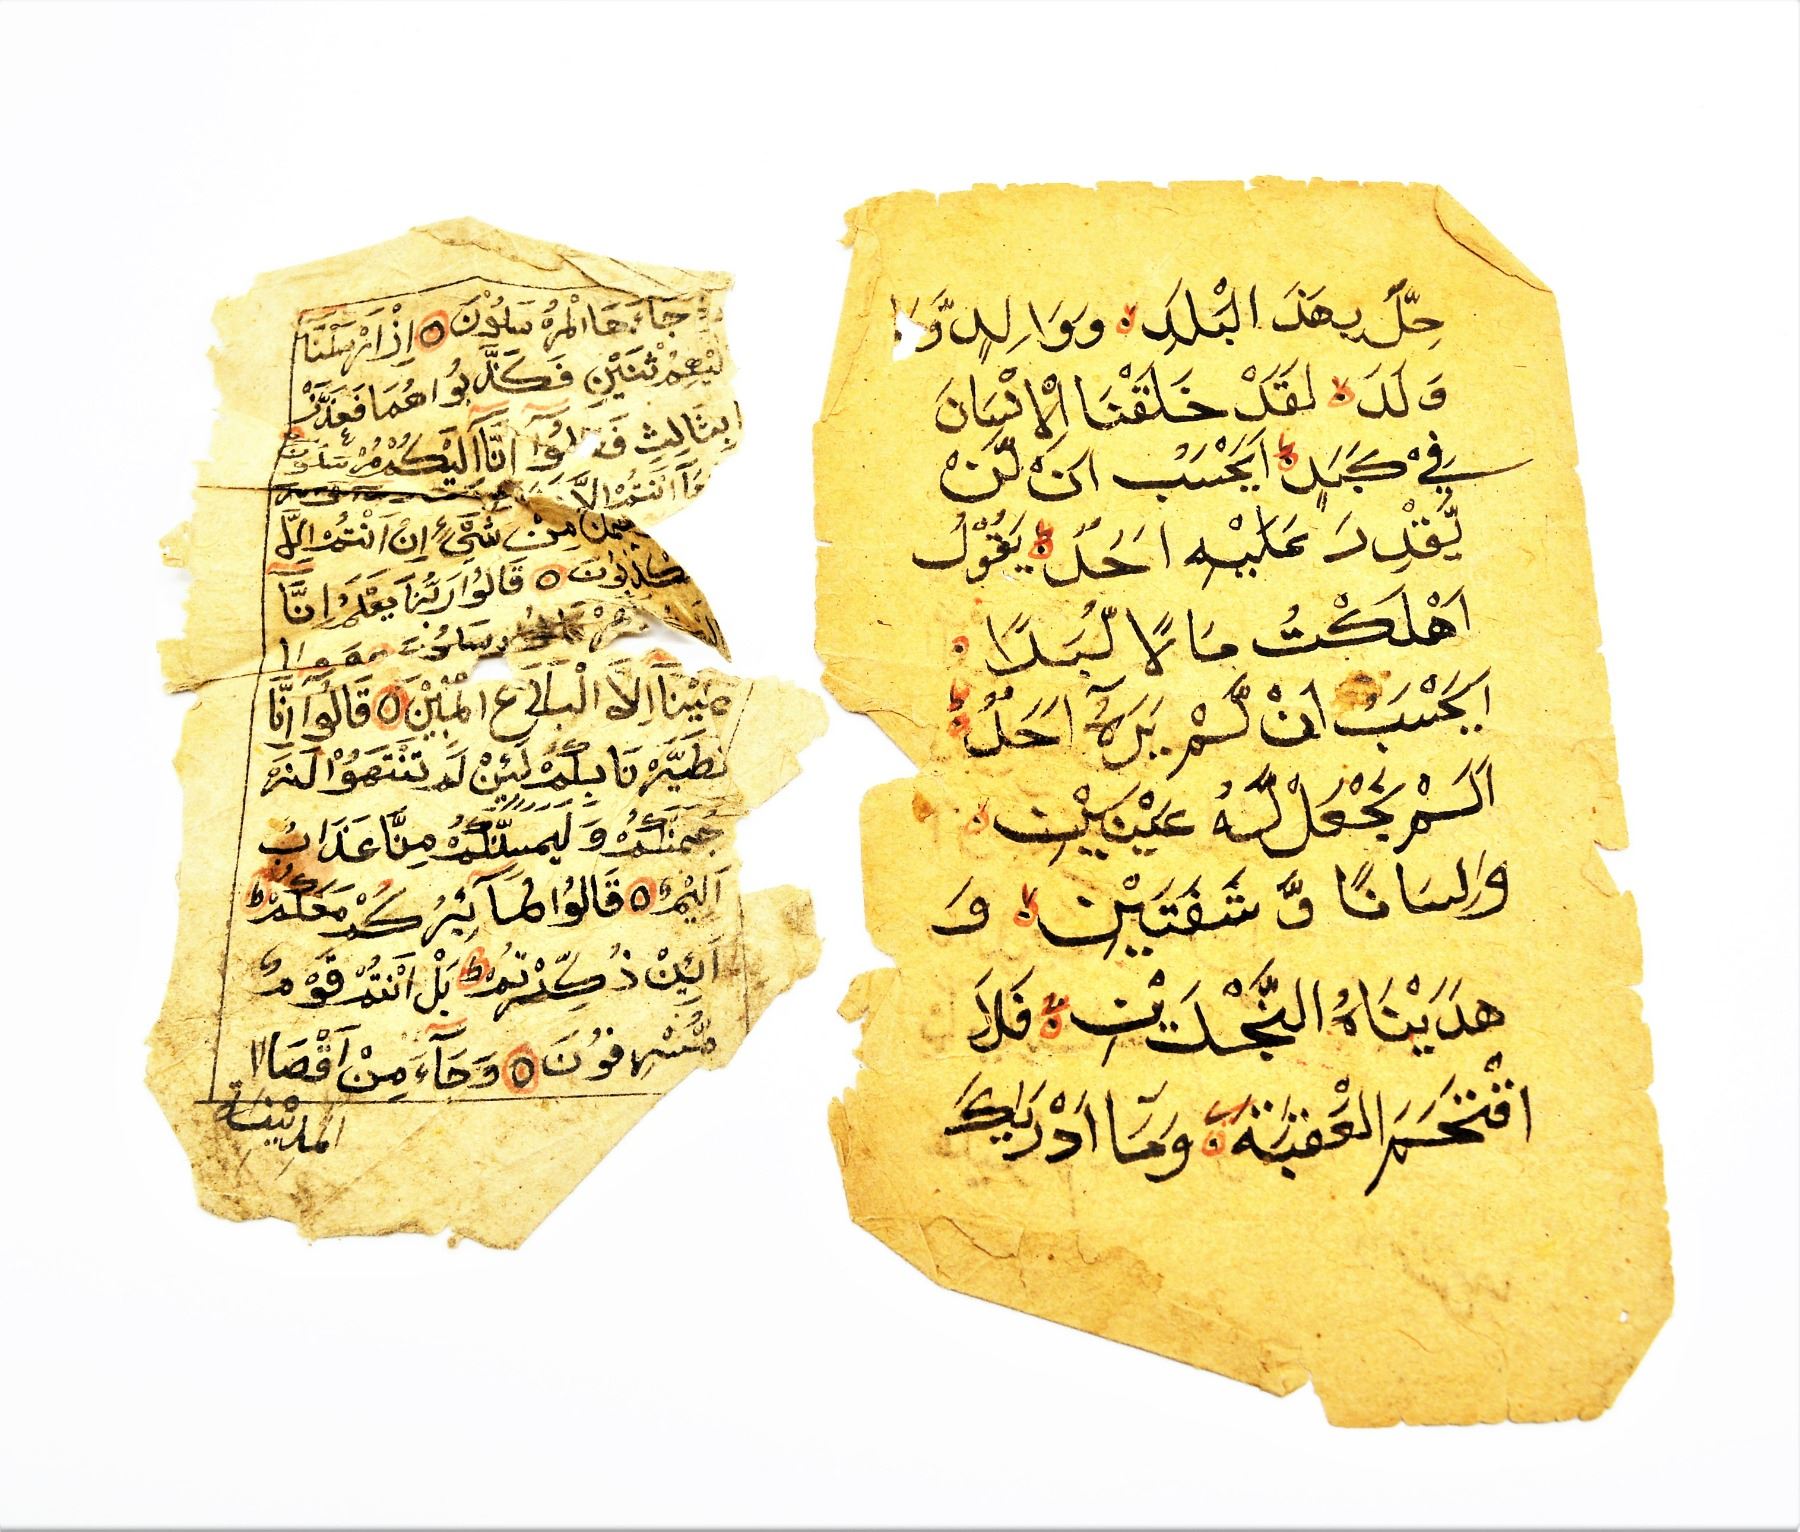 حِلٌّ بِهٰذَ الْبَلَدِ ۙ وَوَالِدٍ وَّمَا
وَلَدَ ۙ لَقَدْ خَلَقْنَا الْاِنْسَانَ
فِيْ كَبَدٍ ؕ اَيَحْسَبُ اَنْ لَّنْ
يَّقْدِرَ عَلَيْهِ اَحَدٌ ۘ يَقُوْلُ
اَهْلَكْتُ مَالًا لُّبَدًا
اَيَحْسَبُ اَنْ لَّمْ يَرَهٗٓ اَحَدٌ ؕ
اَلَمْ نَجْعَلْ لَّهُ عَيْنَيْنِ ۙ
وَلِسَانًا وَّ شَفَتَيْنِ ۙ وَ
هَدَيْنَاهُ النَّجْدَيْنِ ۚ فَلَا
اقْتَحَمَ الْعَقَبَةَ ۖ وَمَا اَدْرٰىكَ
جَاءَهَا الْمُرْسَلُوْنَ ۝ اِذْ اَرْسَلْنَا
اِلَيْهِمُ ثْنَيْنِ فَكَذَّبُوا هُمَا فَعَزَّزْ
نَا بِثَالِثٍ فَقَالُوْٓا اِنَّآ اِلَيْكُمْ مُرْسَلُوْنَ
مَآ اَنْتُمْ اِلَّا
مِنْ شَيْءٍ اِنْ اَنْتُمْ اِلَّا
تَكْذِبُوْنَ ۝ قَالُوْا رَبُّنَا يَعْلَمُ اِنَّآ
وَمَا
عَلَيْنَآ اِلَّا الْبَلٰغُ الْمُبِيْنُ ۝ قَالُوْٓا اِنَّا
تَطَيَّرْنَا بِكُمْ لَئِنْ لَّمْ تَنْتَهُوْا لَنَرْ
جُمَنَّكُمْ وَلَيَمَسَّنَّكُمْ مِنَّا عَذَابٌ
اَلِيْمٌ ۝ قَالُوْا طَآئِرُكُمْ مَعَكُمْ ؕ
اَئِنْ ذُكِّرْتُمْ ؕ بَلْ اَنْتُمْ قَوْمٌ
مُّسْرِفُوْنَ ۝ وَجَآءَ مِنْ اَقْصَا ا
الْمَدِيْنَةِ